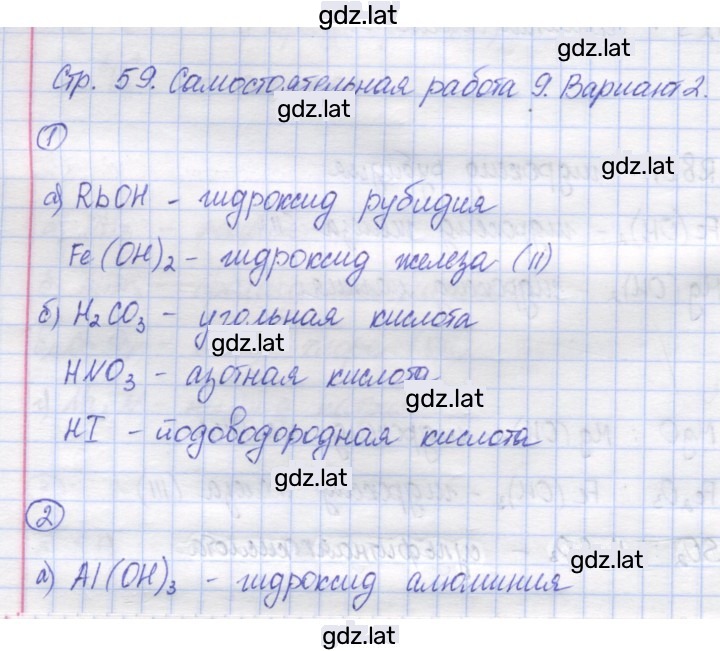 gdz.lat
gdz.lat
Стр. 59. Самостоятельная работа 9. Вариант 2.
gdz.lat
1
gdz.lat
а) RbOH - гидроксид рубидия
Fe(OH)₂ - гидроксид железа (II)
б) H₂CO₃ - угольная кислота
gdz.lat
HNO₃ - азотная кислота
gdz.lat
HI - йодоводородная кислота
gdz.lat
2
gdz.lat
а) Al(OH)₃ - гидроксид алюминия
gdz.lat